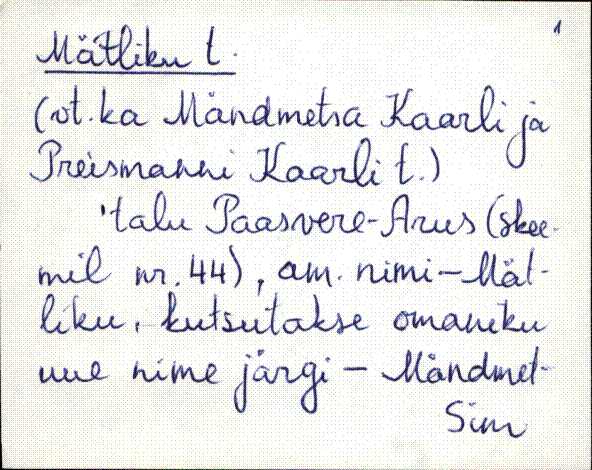 1
Mätliku t.
(vt. ka Mändmetsa Kaarli ja
Preismanni Kaarli t.)
'talu Paasvere-Arus (skee-
mil nr. 44), am. nimi – Mät-
liku, kutsutakse omaniku
uue nime järgi – Mändmet-
Sim